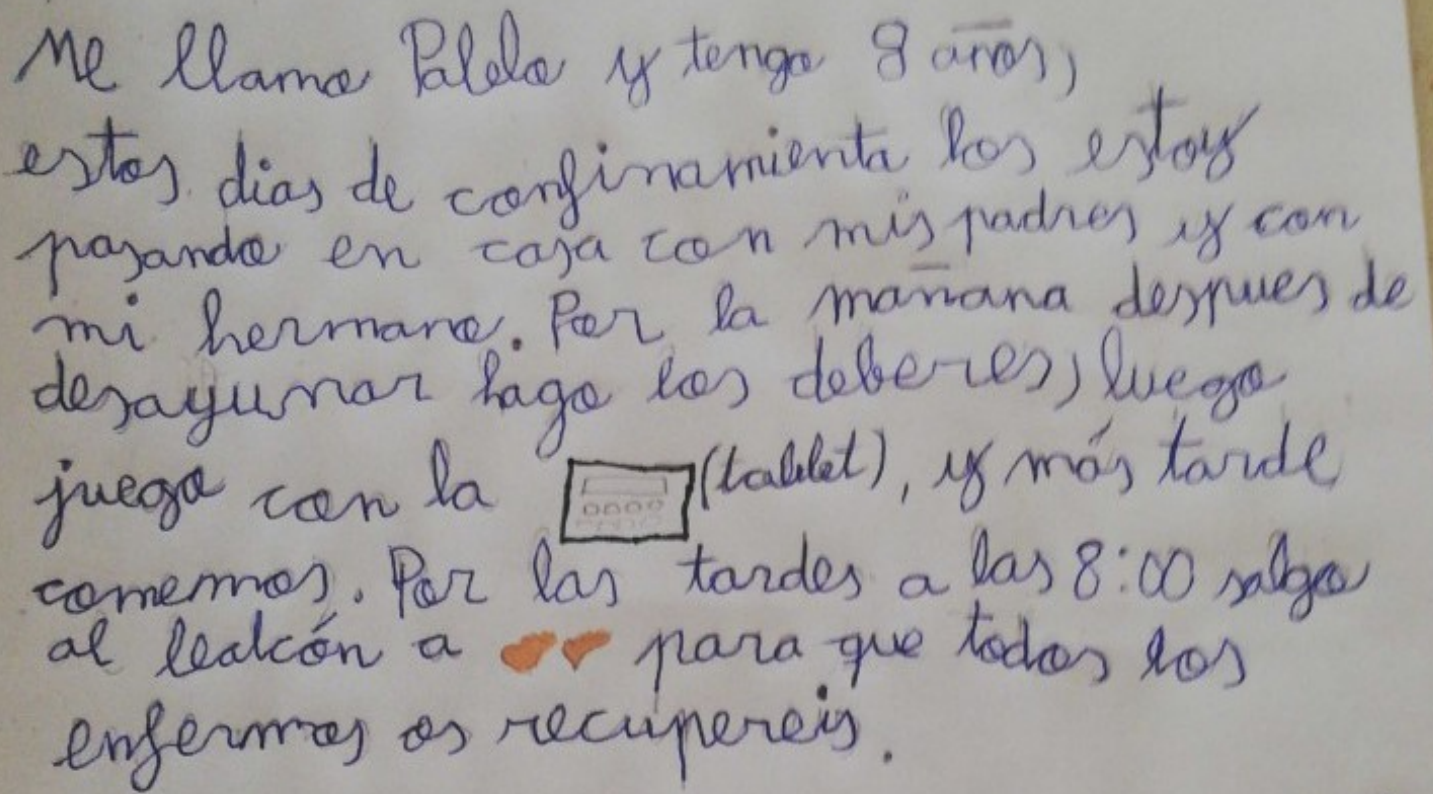 Me llamo Pablo y tengo 8 años,
estos dias de confinamiento los estoy
pasando en casa con mis padres y con
mi hermano. Por la mañana despues de
desayunar hago los deberes, luego
juego con la (tablet), y más tarde
comemos. Por las tardes a las 8:00 salgo
al balcón a para que todos los
enfermos os recupereis.